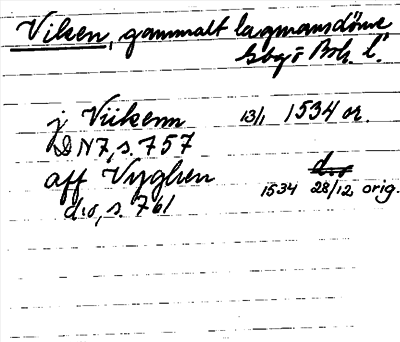 Viken, gammalt lagmansdöme
Gbgs o Boh. l.
j Viikenn 13/1 1534 or.
DN 7, s. 757
aff Vyghen d:o
1534 28/12, orig.
d:o, s. 761